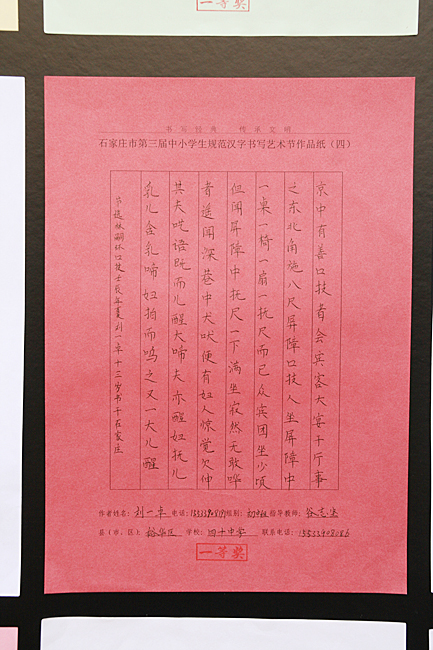 一等奖
书写经典 传承文明
石家庄市第三届中小学生规范汉字书写艺术节作品纸（四）
京中有善口技者会宾客大宴于厅事
之东北角施八尺屏障口技人坐屏障中
一桌一椅一扇一抚尺而已众宾团坐少顷
但闻屏障中抚尺一下满坐寂然无敢哗
者遥闻深巷中犬吠便有妇人惊觉欠伸
其夫呓语既而儿醒大啼夫亦醒妇抚儿
乳儿含乳啼妇拍而鸣之又一大儿醒
节选林嗣环口技壬辰年夏刘一卓十三岁书于石家庄
作者姓名：刘一卓 电话： 组别：初中组 指导教师：谷志
县（市、区）：裕华区 学校：四十中学 联系电话：15533908086
一等奖